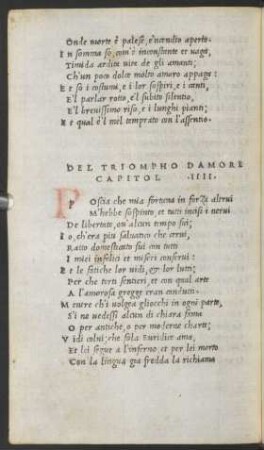 Onde morte è palese, e'ncendio aperto.
In somma so, com'è inconstante et vaga,
Timida ardita vita de gli amanti;
Ch'un poco dolce molto amaro appaga:
Et so i costumi, et i lor sospiri, e i canti,
E'l parlar rotto, e'l subito silentio,
E'l brevissimo riso, e i lunghi pianti;
Et qual è'l mel temprato con l'assentio.
DEL TRIOMPHO D'AMORE
CAPITOL .IIII.
P Oscia che mia fortuna in forza altrui
M'hebbe sospinto, et tutti incisi i nervi
Di libertate, ov'alcun tempo fui;
Io, ch'era piu salvatico che cervi,
Ratto domesticato fui con tutti
I miei infelici et miseri conservi:
Et le fatiche lor vidi, et lor lutti;
Per che torti sentieri, et con qual arte
A l'amorosa gregge eran condutti.
Mentre ch'i volgea gliocchi in ogni parte,
S'i ne vedessi alcun di chiara fama
O per antiche, o per moderne charte;
Vidi colui, che sola Euridice ama,
Et lei segue a l'inferno, et per lei morto
Con la lingua gia fredda la richiama